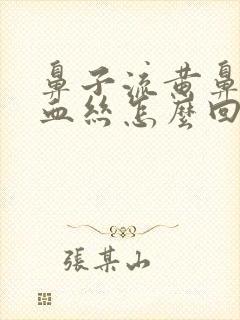 鼻子流黄鼻
血丝怎麽回
張某山